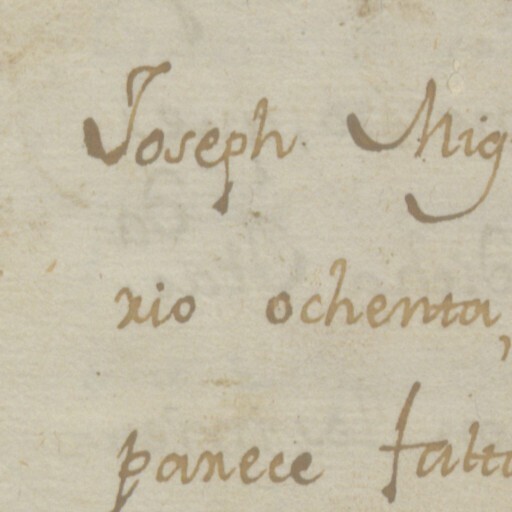 Joseph Mig
rio ochenta,
parece falta